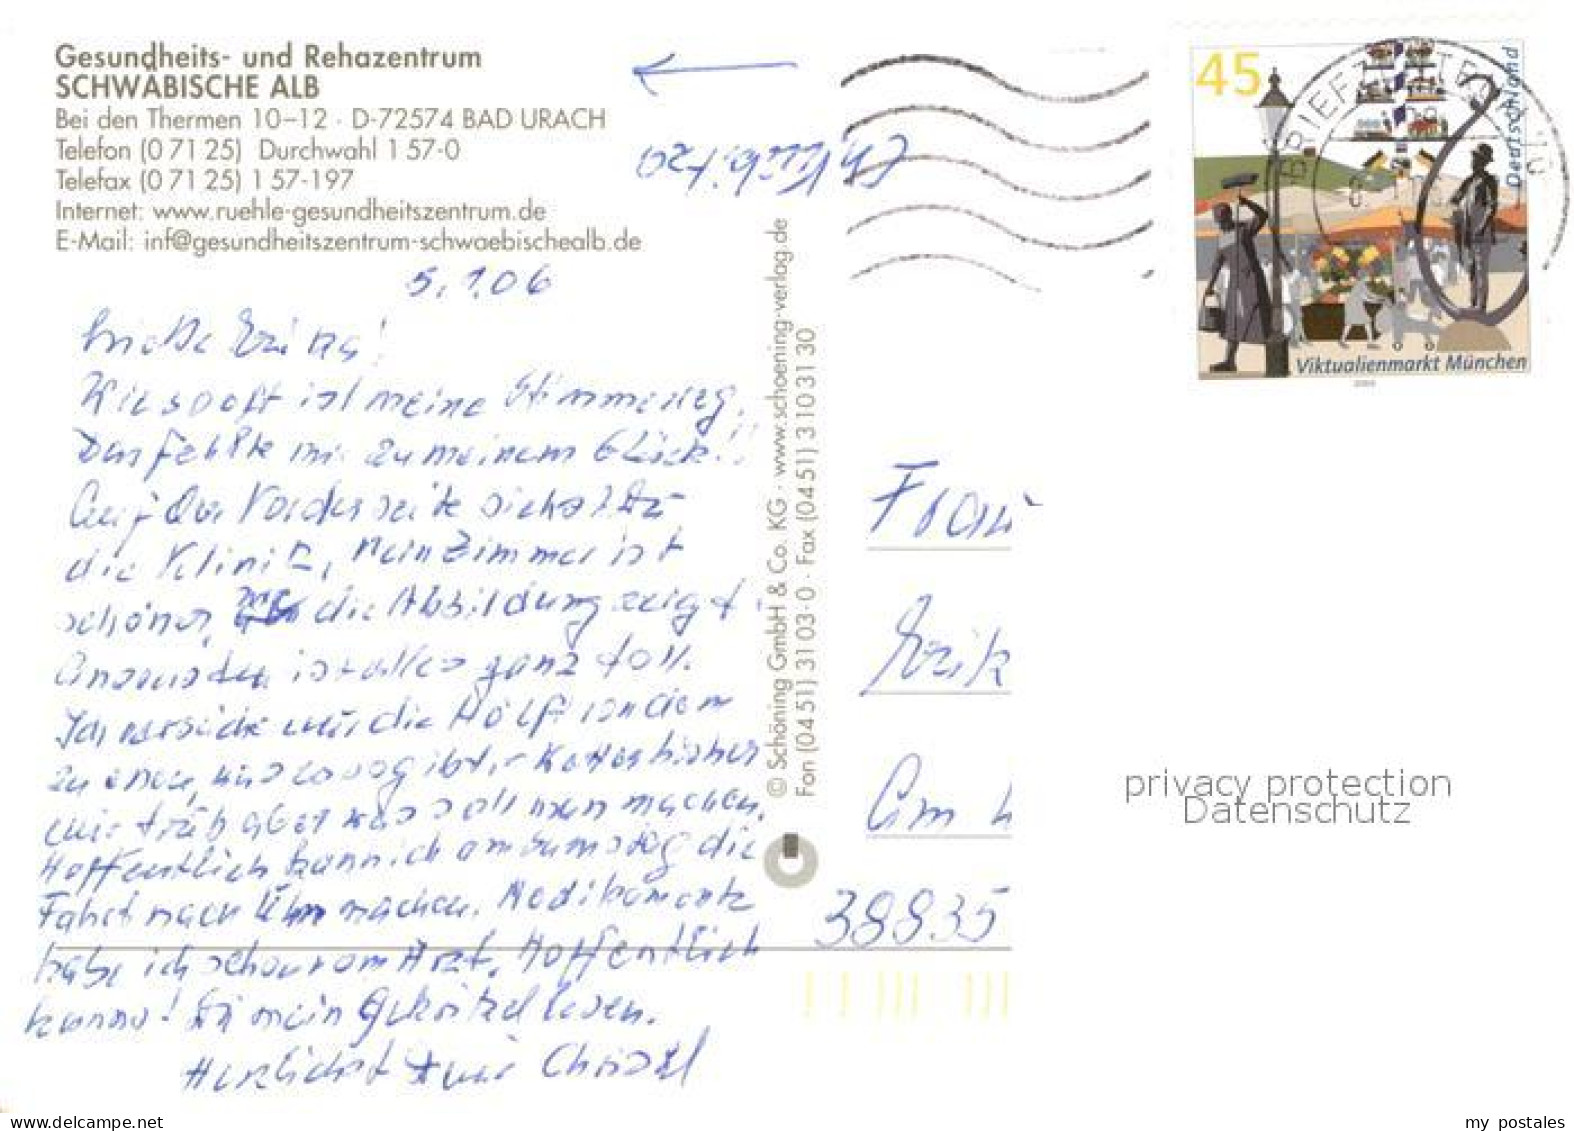 Gesundheits- und Rehazentrum
SCHWÄBISCHE ALB
Bei den Thermen 10–12 · D-72574 BAD URACH
Telefon (0 71 25) Durchwahl 1 57-0
Telefax (0 71 25) 1 57-197
Internet: www.ruehle-gesundheitszentrum.de
E-Mail: inf@gesundheitszentrum-schwaebischealb.de
5.1.06
ist meine Stimme weg,
Das fehlte mir zu meinem Glück!!
Auf der Vorderseite siehst Du
die Klinik, mein Zimmer ist
schöner, die Abbildung zeigt
Ansonsten ist alles ganz toll.
Ich versuche nur die Hälfte von dem
zu was es so gibt.
aber was soll man machen.
Hoffentlich kann ich am Samstag die
Fahrt nach Ulm machen. Medikamente
habe ich schon vom Arzt. Hoffentlich
kannst Du mein Gekritzel lesen.
Herzlichst Christel
© Schöning GmbH & Co. KG · www.schoening-verlag.de
Fon (04 51) 31 03-0 · Fax (04 51) 3 10 31 30
45
Deutschland
Viktualienmarkt München
BRIEFZENTRUM
Frau
Erik
Am
38835
privacy protection
Datenschutz
www.delcampe.net
my postales